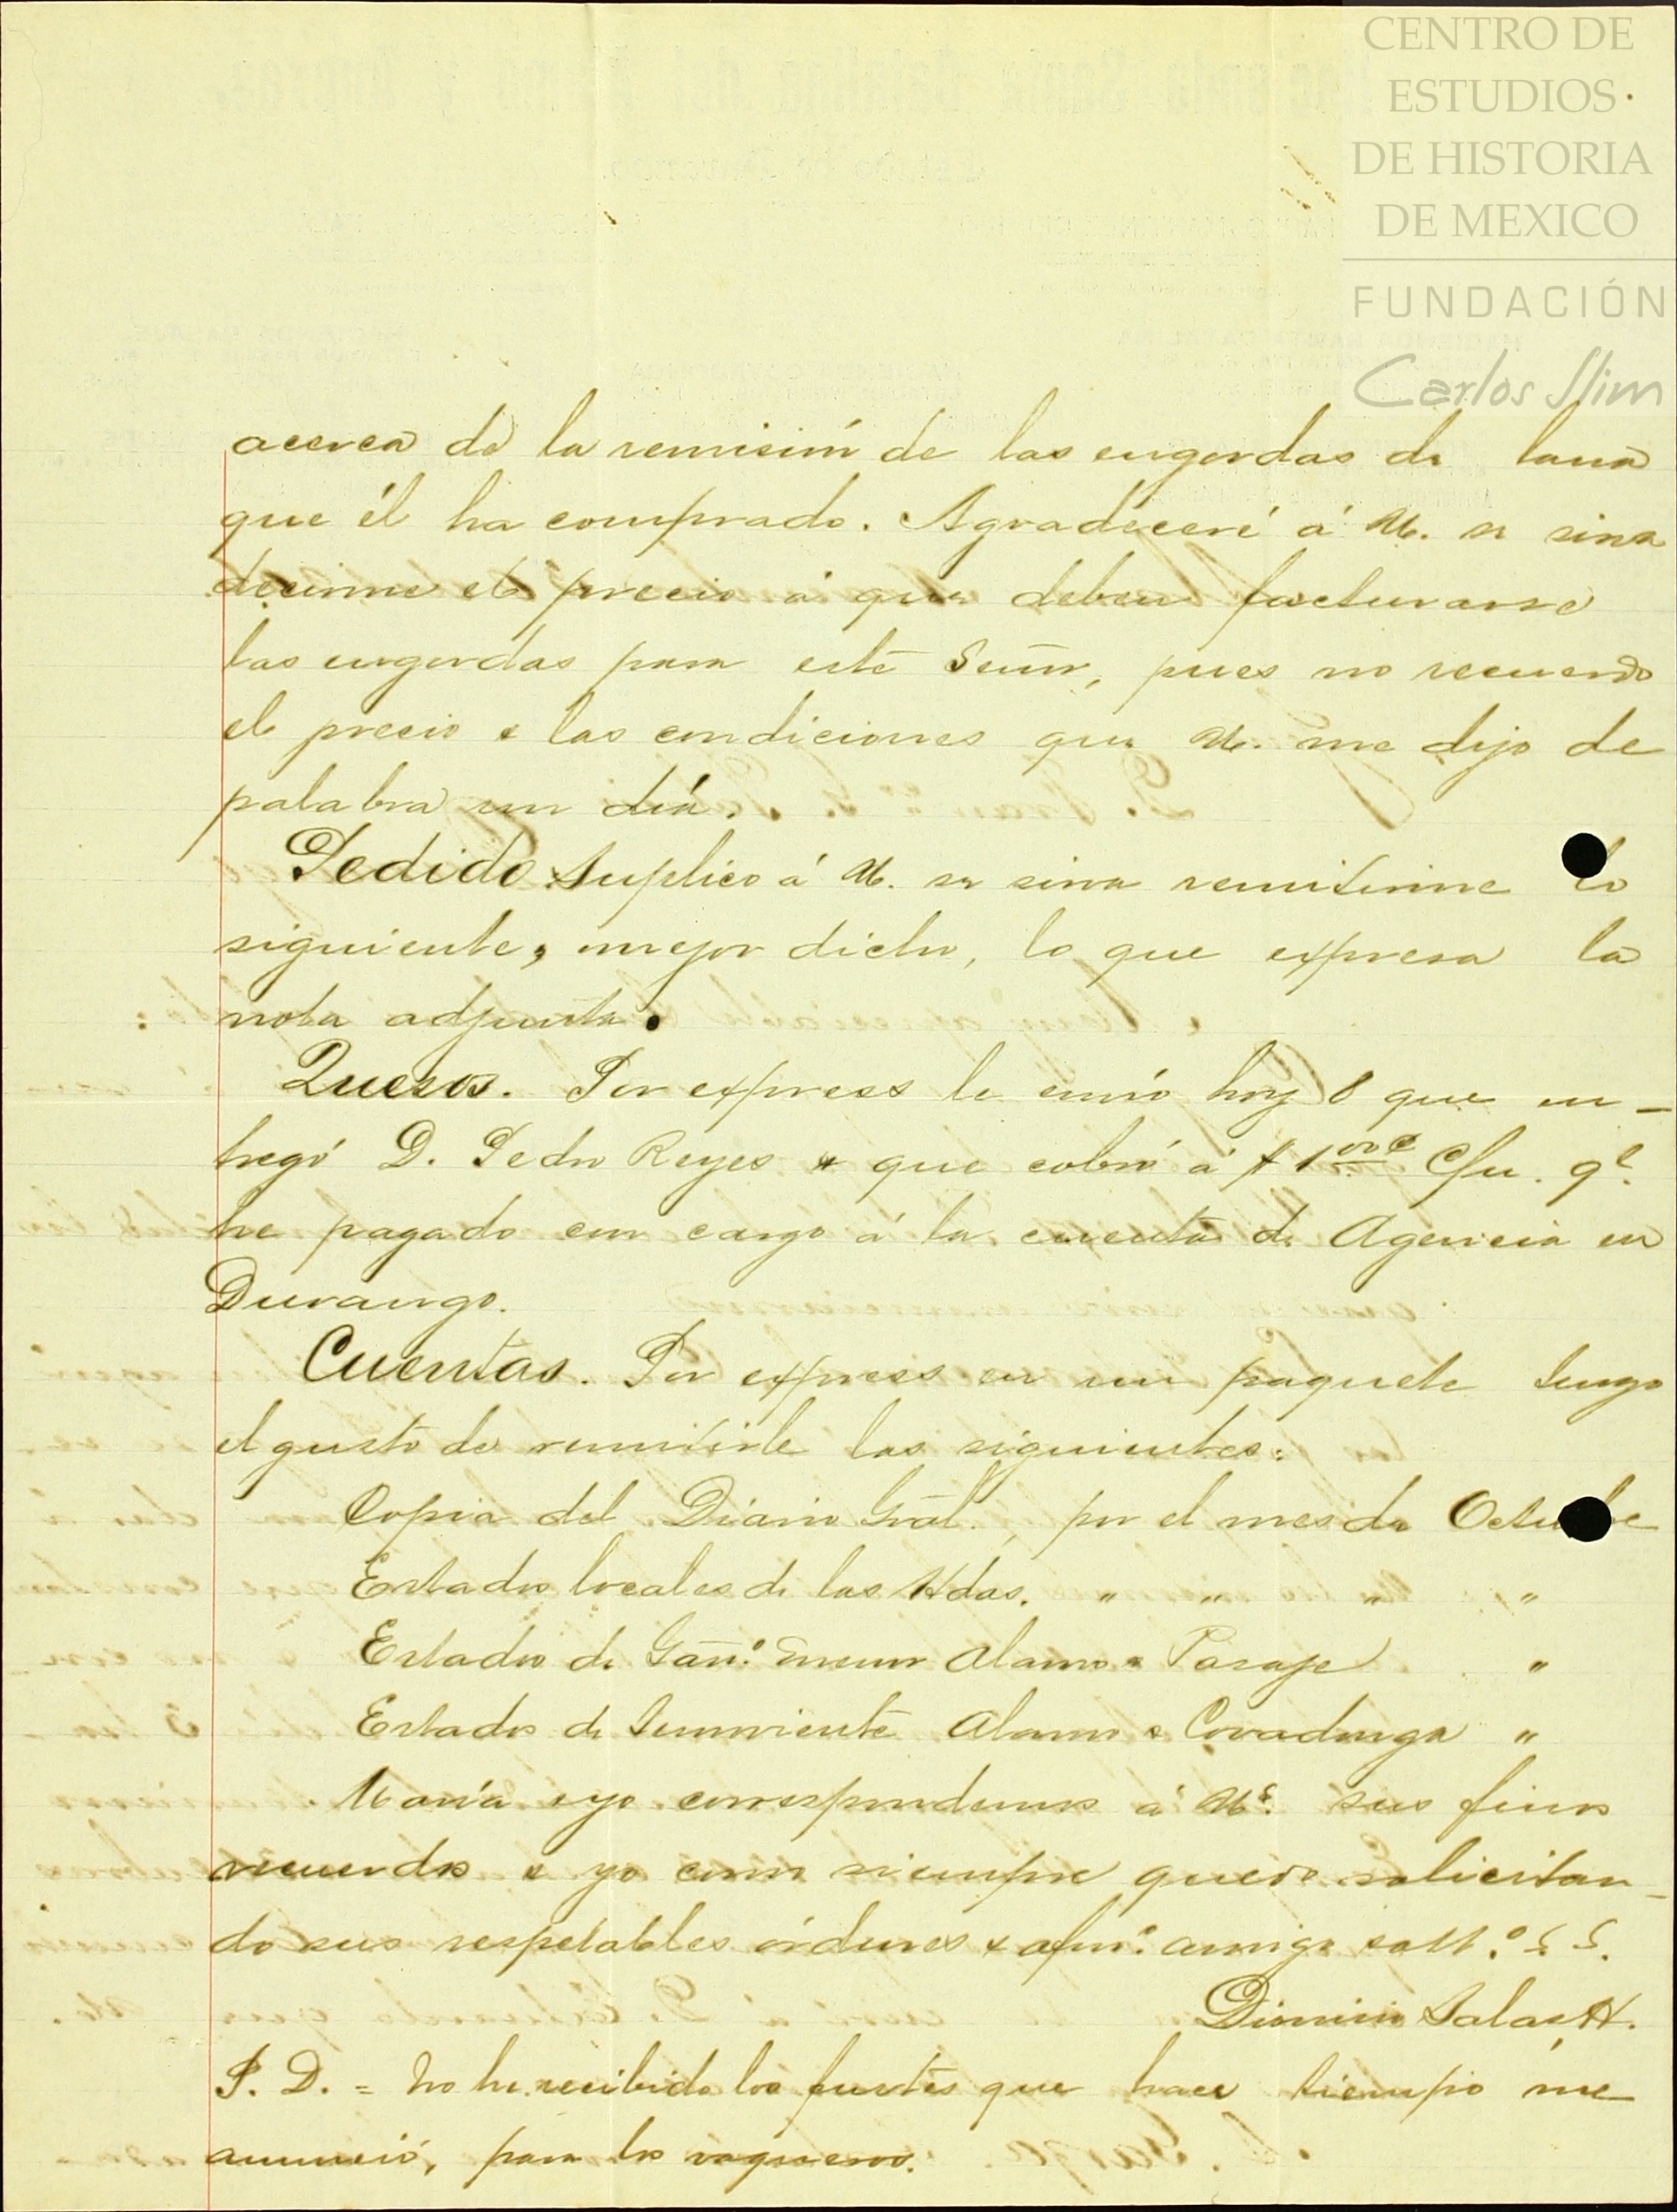 CENTRO DE
ESTUDIOS
DE HISTORIA
DE MEXICO
FUNDACIÓN
Carlos Slim
acerca de la remisión de las engordas de lana
que él ha comprado. Agradeceré á U. se sirva
decirme el precio á que deben facturarse
las engordas para este Señor, pues no recuerdo
el precio e las condiciones que U. me dijo de
palabra un día.
Pedido. Suplico á U. se sirva remitirme lo
siguiente, mejor dicho, lo que expresa la
nota adjunta.
Quesos. Por express le envío hoy 8 que en-
tregó D. Pedro Reyes y que cobró á $1 00 c/u. qe.
he pagado con cargo á la cuenta de Agencia en
Durango.
Cuentas. Por express en un paquete tengo
el gusto de remitirle las siguientes:
Copia del Diario Gral., por el mes de Octubre
Estados locales de las Hdas. " " " "
Estados de Gan.º menor Alamo e Pasaje "
Estados de Semoviente Alamo e Covadonga "
María e yo correspondemos á Us. sus finos
recuerdos e yo como siempre quedo solicitan-
do sus respetables órdenes e afmo. amigo e att.º S. S.
Dionisio Salas H.
P. D. = No he recibido los fustes que hace tiempo me
anunció, para los vaqueros.